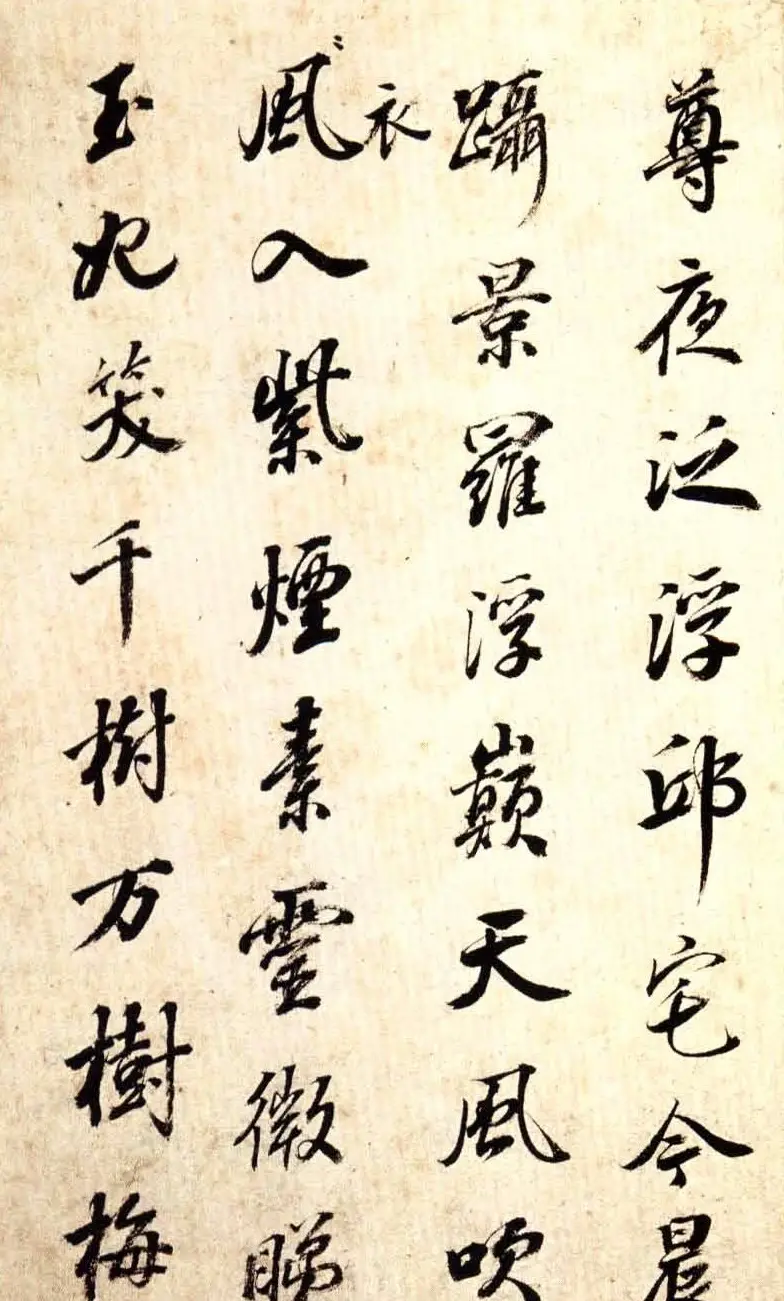 尊夜泛浮邱宅今晨
躡景羅浮巔天風吹
衣
風入紫煙素靈微睇
玉妃笑千樹万樹梅